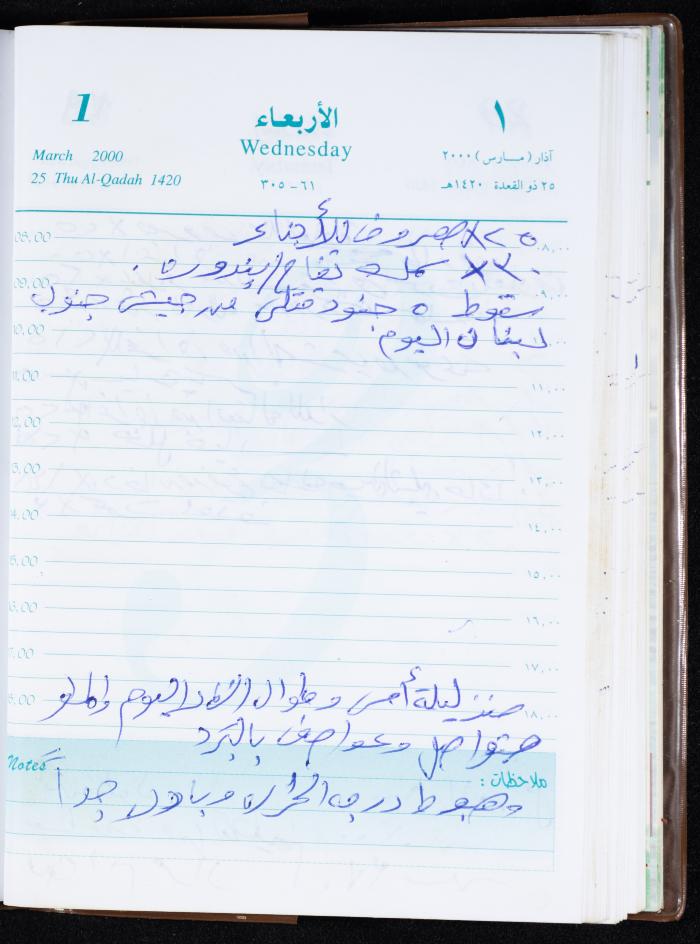 1
الأربعاء
١
Wednesday
March 2000
آذار (مارس) ٢٠٠٠
25 Thu Al-Qadah 1420
٦١ - ٣٠٥
٢٥ ذو القعدة ١٤٢٠هـ
٢٥X مصروف للأبناء
08.00 ٠٨,٠٠
٣٠X سمك تفاح/بندورة.
09.00 ٠٩,٠٠
سقوط ٥ جنود قتلى من جيش جنوب
10.00
لبنان اليوم.
11.00 ١١,٠٠
12.00 ١٢,٠٠
13.00 ١٣,٠٠
14.00 ١٤,٠٠
15.00 ١٥,٠٠
16.00 ١٦,٠٠
17.00 ١٧,٠٠
منذ ليلة أمس وطوال النهار اليوم والمطر
18.00 ١٨,٠٠
متواصل وعواصف بالبرد
Notes ملاحظات :
وهبوط درجة الحرارة وبارد جداً